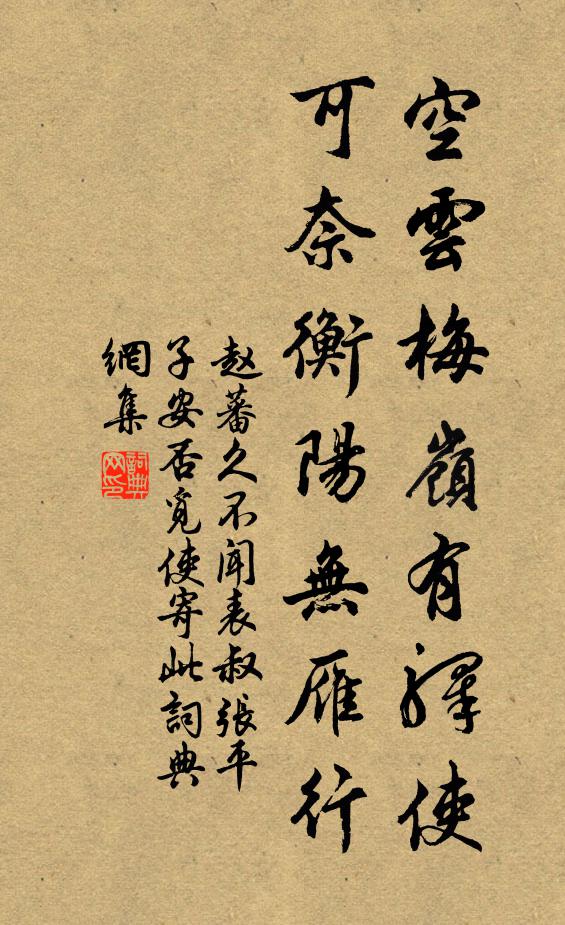 空雲梅嶺有驛使
可奈衡陽無雁行
赵蕃久不闻表叔張平
子安否覓使寄此詞典
網集
詞典网印